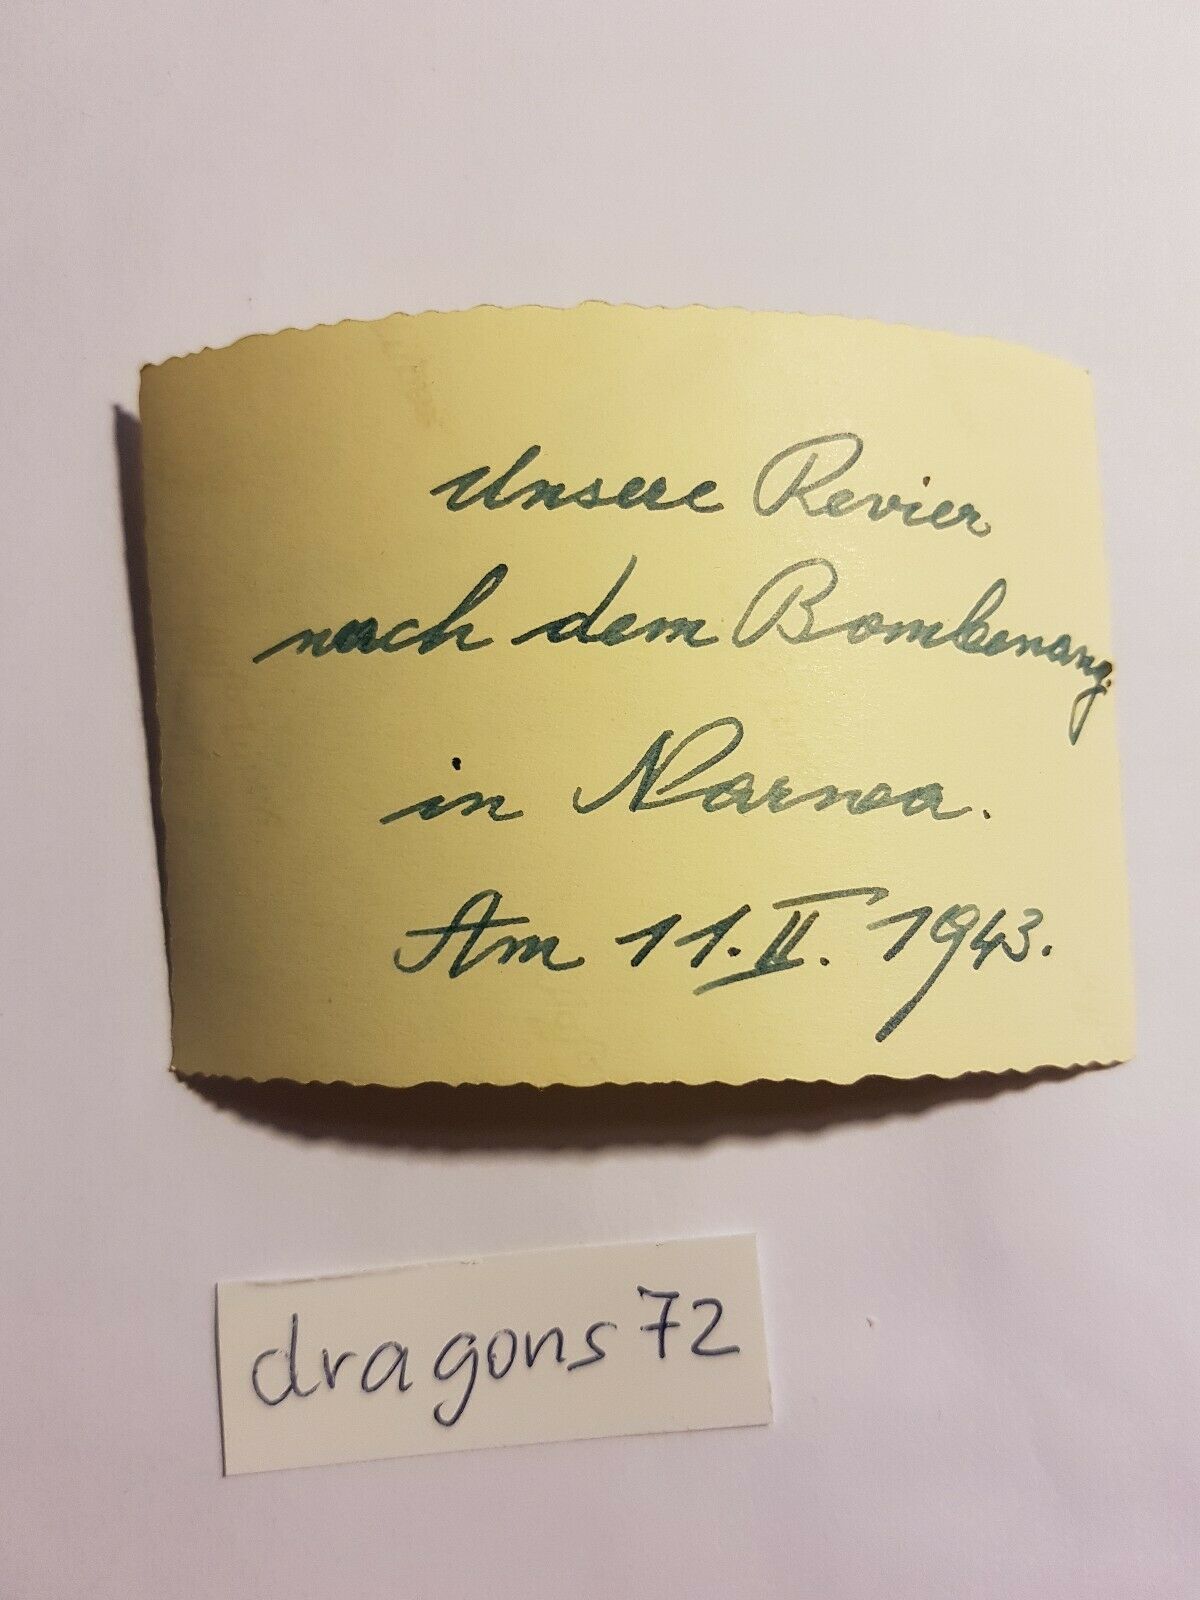 Unsere Revier
nach dem Bombenang.
in Narwa.
Am 11. II. 1943.
dragons72